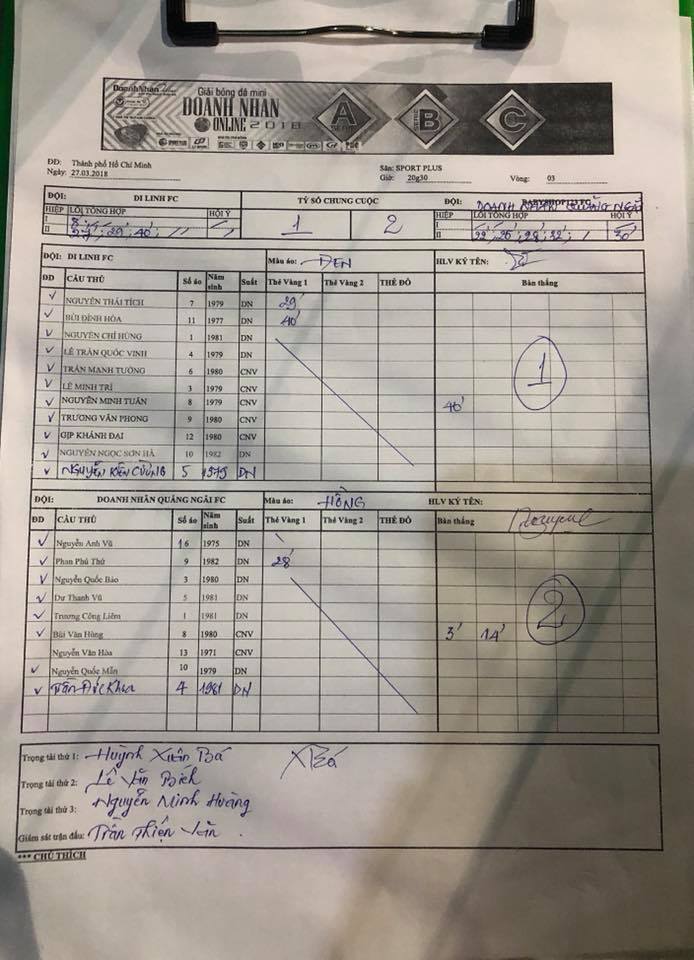 DoanhNhan
Giải bóng đá mini
DOANH NHAN
ONLINE 2018
A SERIE B SERIE C
ĐĐ: Thành phố Hồ Chí Minh Sân: SPORT PLUS
Ngày: 27.03.2018 Giờ: 20g30 Vòng: 03
ĐỘI: DI LINH FC TỶ SỐ CHUNG CUỘC ĐỘI: DOANH NHÂN QUẢNG NGÃI
HIỆP LỖI TỔNG HỢP HỘI Ý 1 2 HIỆP LỖI TỔNG HỢP HỘI Ý
I I
II 29' 40' II 22' 26' 28' 32' 30'
ĐỘI: DI LINH FC Màu áo: ĐEN HLV KÝ TÊN:
ĐD CẦU THỦ Số áo Năm sinh Suất Thẻ Vàng 1 Thẻ Vàng 2 THẺ ĐỎ Bàn thắng
✓ NGUYỄN THÁI TÍCH 7 1979 DN 29'
✓ BÙI ĐÌNH HÒA 11 1977 DN 40'
✓ NGUYỄN CHÍ HÙNG 1 1981 DN
✓ LÊ TRẦN QUỐC VINH 4 1979 DN
✓ TRẦN MẠNH TƯỜNG 6 1980 CNV 1
✓ LÊ MINH TRÍ 3 1979 CNV
✓ NGUYỄN MINH TUẤN 8 1979 CNV 40'
✓ TRƯƠNG VĂN PHONG 9 1980 CNV
✓ GỊP KHÁNH ĐẠI 12 1980 CNV
✓ NGUYỄN NGỌC SƠN HÀ 10 1982 DN
✓ NGUYỄN KIÊN CƯỜNG 5 1979 DN
ĐỘI: DOANH NHÂN QUẢNG NGÃI FC Màu áo: HỒNG HLV KÝ TÊN:
ĐD CẦU THỦ Số áo Năm sinh Suất Thẻ Vàng 1 Thẻ Vàng 2 THẺ ĐỎ Bàn thắng
✓ Nguyễn Anh Vũ 16 1975 DN
✓ Phan Phú Thứ 9 1982 DN 28'
✓ Nguyễn Quốc Bảo 3 1980 DN
✓ Dư Thanh Vũ 5 1981 DN 2
✓ Trương Công Liêm 1 1981 DN
✓ Bùi Văn Hùng 8 1980 CNV 3' 14'
Nguyễn Văn Hòa 13 1971 CNV
✓ Nguyễn Quốc Mẫn 10 1979 DN
✓ Trần Đức Khoa 4 1981 DN
Trọng tài thứ 1: Huỳnh Xuân Bá XBá
Trọng tài thứ 2: Lê Văn Bích
Trọng tài thứ 3: Nguyễn Minh Hoàng
Giám sát trận đấu: Trần Thiện Văn
*** CHÚ THÍCH